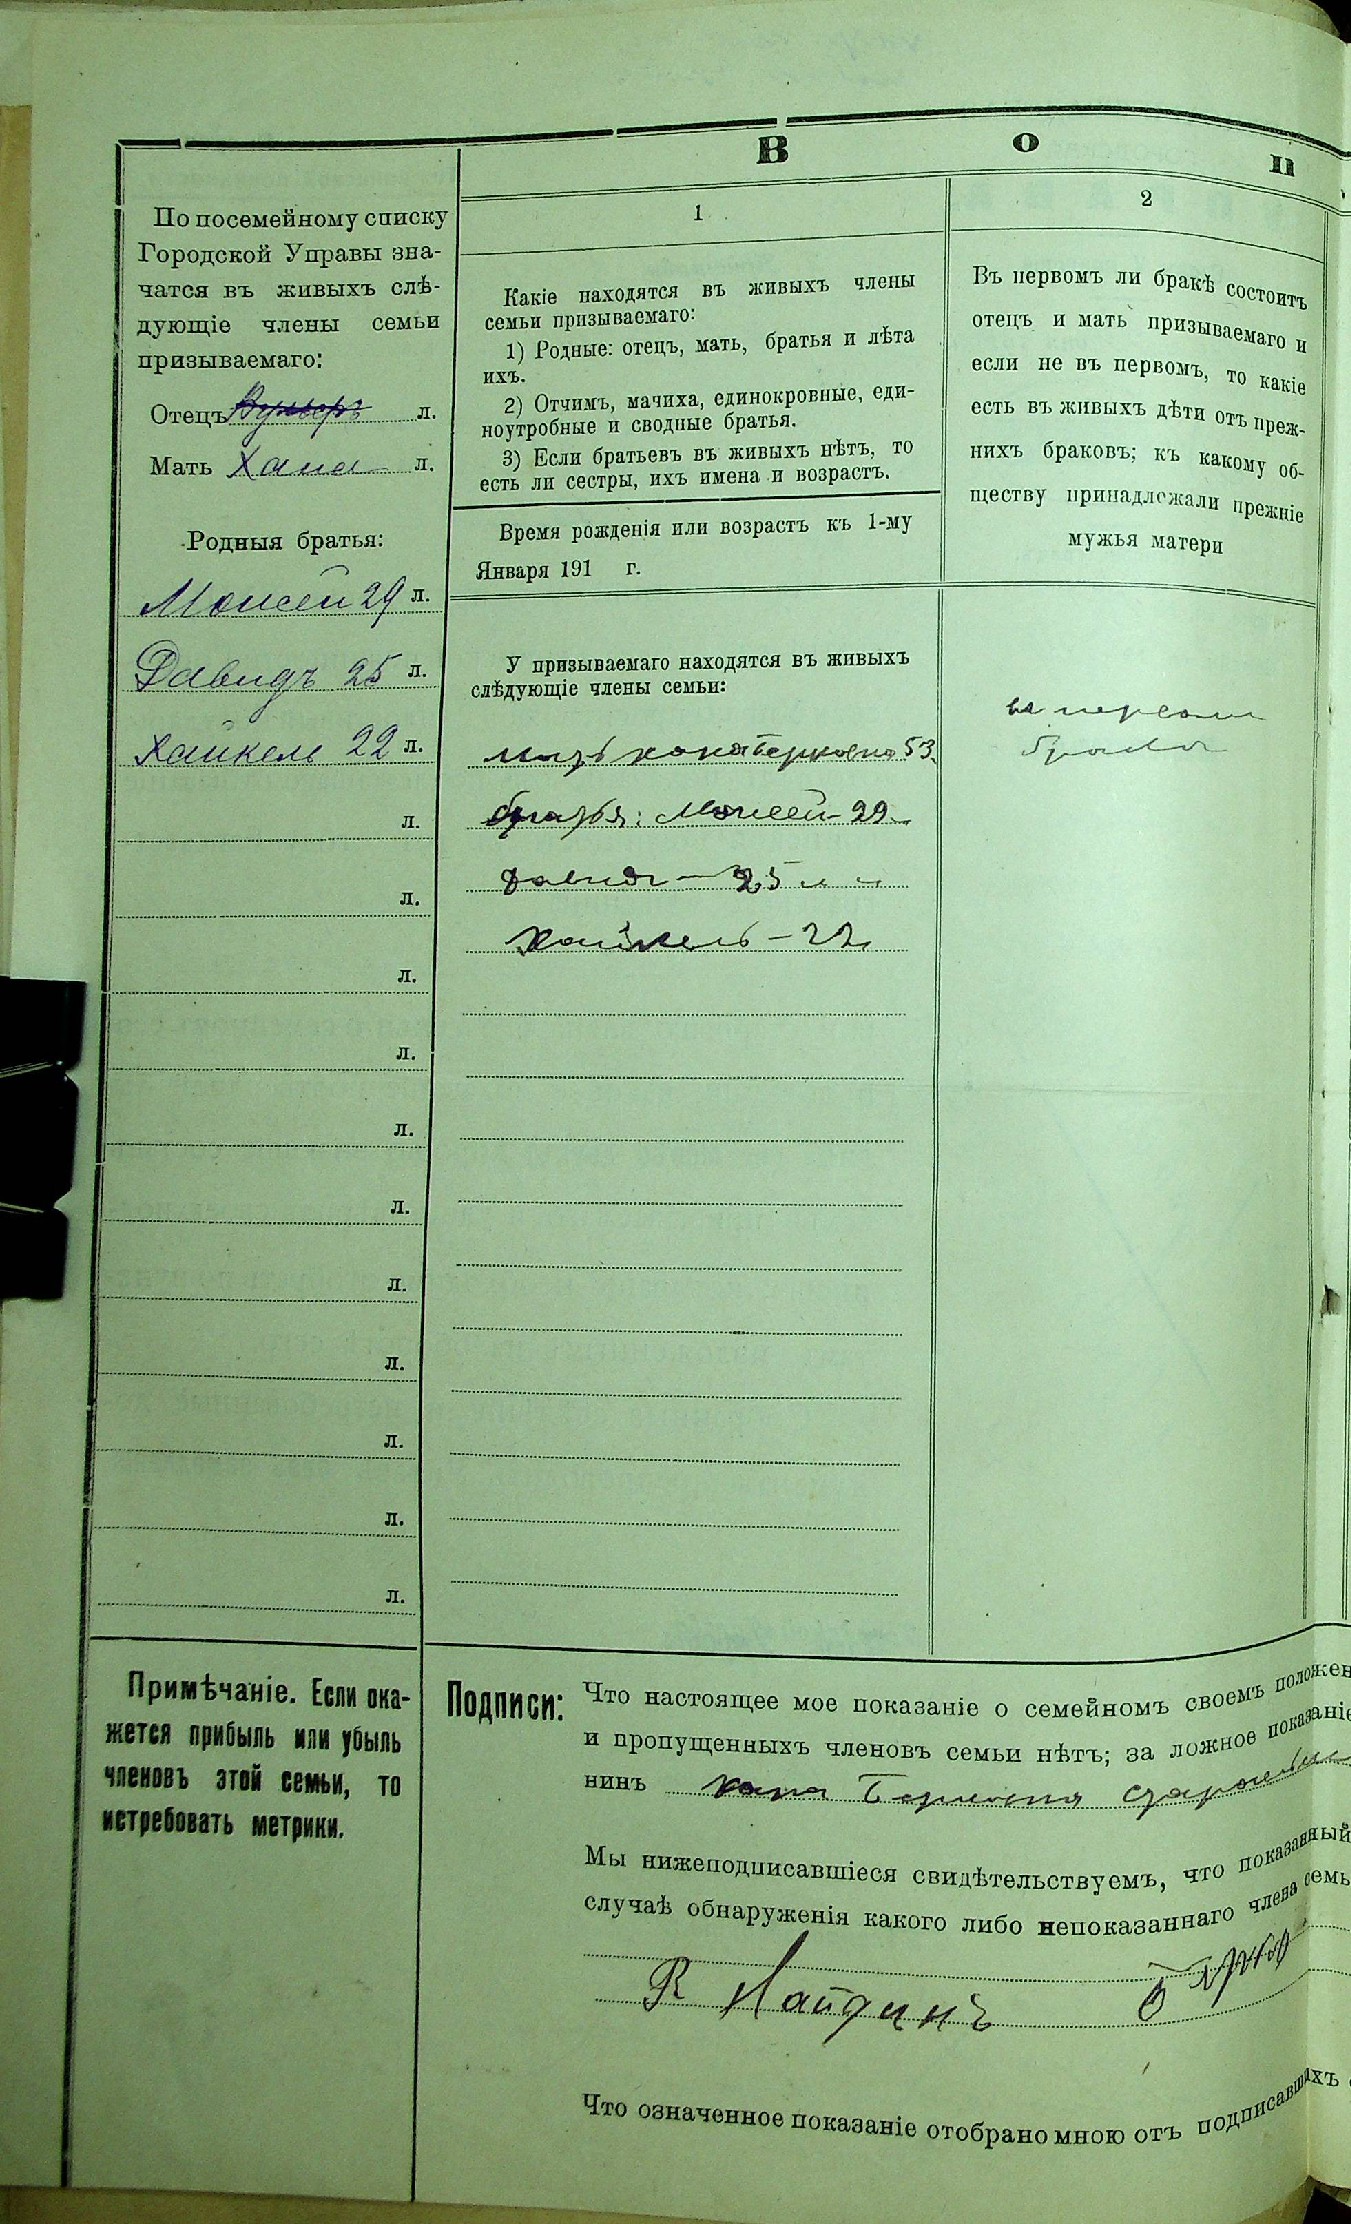 В о п
По посемейному списку
Городской Управы зна-
чатся въ живыхъ слѣ-
дующіе члены семьи
призываемаго:
Отецъ л.
Мать Хана л.
Родныя братья:
Моисей 29 л.
Давидъ 25 л.
Хайкель 22 л.
л.
л.
л.
л.
л.
л.
л.
л.
л.
л.
л.
Примѣчаніе. Если ока-
жется прибыль или убыль
членовъ этой семьи, то
истребовать метрики.
1
Какіе находятся въ живыхъ члены
семьи призываемаго:
1) Родные: отецъ, мать, братья и лѣта
ихъ.
2) Отчимъ, мачиха, единокровные, еди-
ноутробные и сводные братья.
3) Если братьевъ въ живыхъ нѣтъ, то
есть ли сестры, ихъ имена и возрастъ.
Время рожденія или возрастъ къ 1-му
Января 191 г.
У призываемаго находятся въ живыхъ
слѣдующіе члены семьи:
мать хана 53
братья: Моисей - 29
Давидъ - 25
Хайкель - 22
2
Въ первомъ ли бракѣ состоитъ
отецъ и мать призываемаго и
если не въ первомъ, то какіе
есть въ живыхъ дѣти отъ преж-
нихъ браковъ; къ какому об-
ществу принадлежали прежніе
мужья матери
въ первомъ
бракѣ
Подписи: Что настоящее мое показаніе о семейномъ своемъ положен
и пропущенныхъ членовъ семьи нѣтъ; за ложное показаніе
нинъ хана
Мы нижеподписавшіеся свидѣтельствуемъ, что показанный
случаѣ обнаруженія какого либо непоказаннаго члена семь
Найдинъ
Что означенное показаніе отобрано мною отъ подписавшихъ